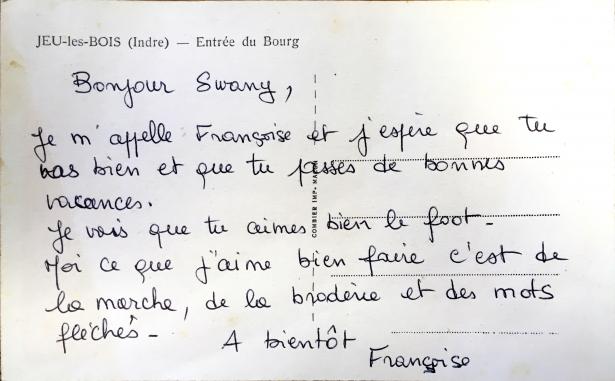 JEU-les-BOIS (Indre) — Entrée du Bourg
Bonjour Swany,
Je m'appelle Françoise et j'espère que tu
vas bien et que tu passes de bonnes
vacances.
Je vois que tu aimes bien le foot-
Moi ce que j'aime bien faire c'est de
la marche, de la broderie et des mots
fléchés-
A bientôt
Françoise
COMBIER IMP.